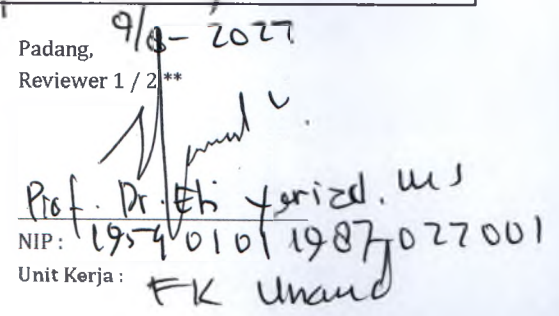 Padang, 9/8 - 2027
Reviewer 1 / 2 **
Prof. Dr. Eti Yerizel. MS
NIP : 1954 0101 1987 027001
Unit Kerja : FK Unand